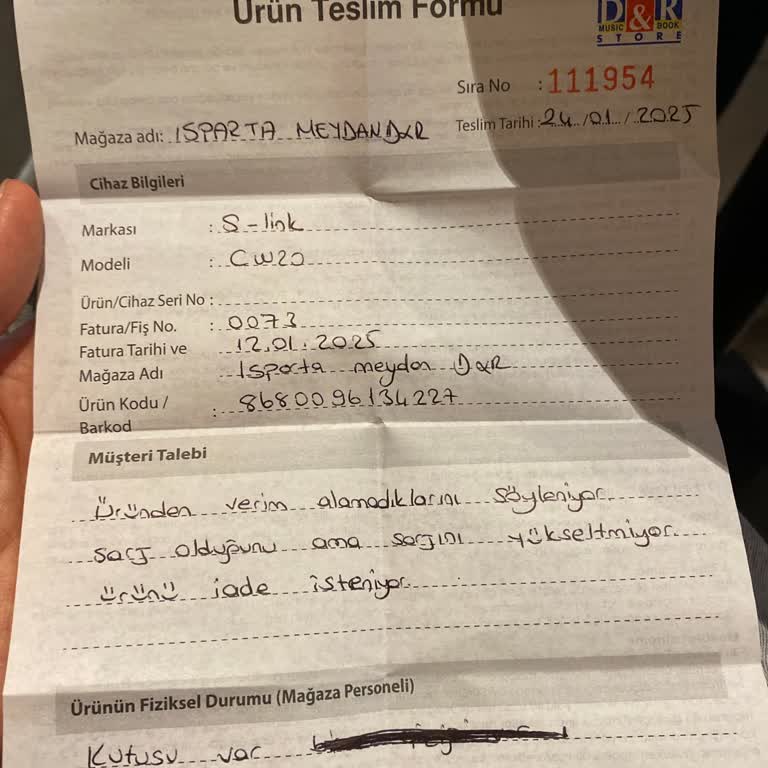 Ürün Teslim Formu
D&R
MUSIC BOOK
STORE
Sıra No : 111954
Mağaza adı: ISPARTA MEYDAN D&R Teslim Tarihi : 24 / 01 / 2025
Cihaz Bilgileri
Markası : S-link
Modeli : CW20
Ürün/Cihaz Seri No :
Fatura/Fiş No. : 0073
Fatura Tarihi ve 12.01.2025
Mağaza Adı Isparta meydan D&R
Ürün Kodu / : 8680096134227
Barkod
Müşteri Talebi
Üründen verim alamadıklarını söyleniyor.
şarj olduğunu ama şarjını yükseltmiyor.
ürünü iade isteniyor.
Ürünün Fiziksel Durumu (Mağaza Personeli)
Kutusu var